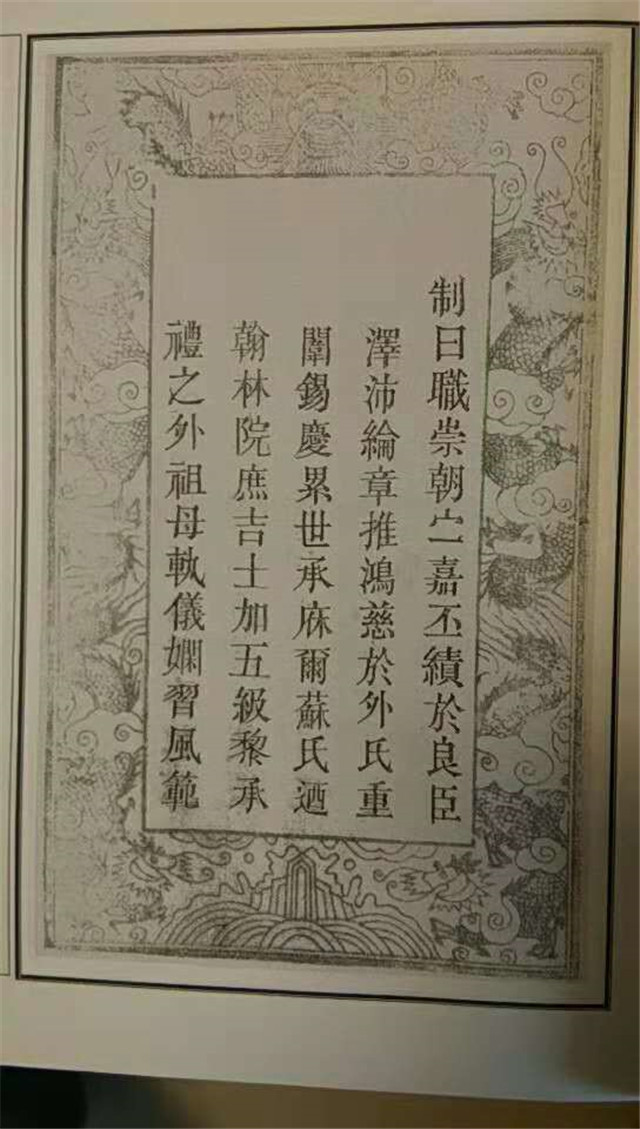 制曰職崇朝宁嘉丕績於良臣
澤沛綸章推鴻慈於外氏重
闈錫慶累世承庥爾蘇氏迺
翰林院庶吉士加五級黎承
禮之外祖母執儀嫻習風範